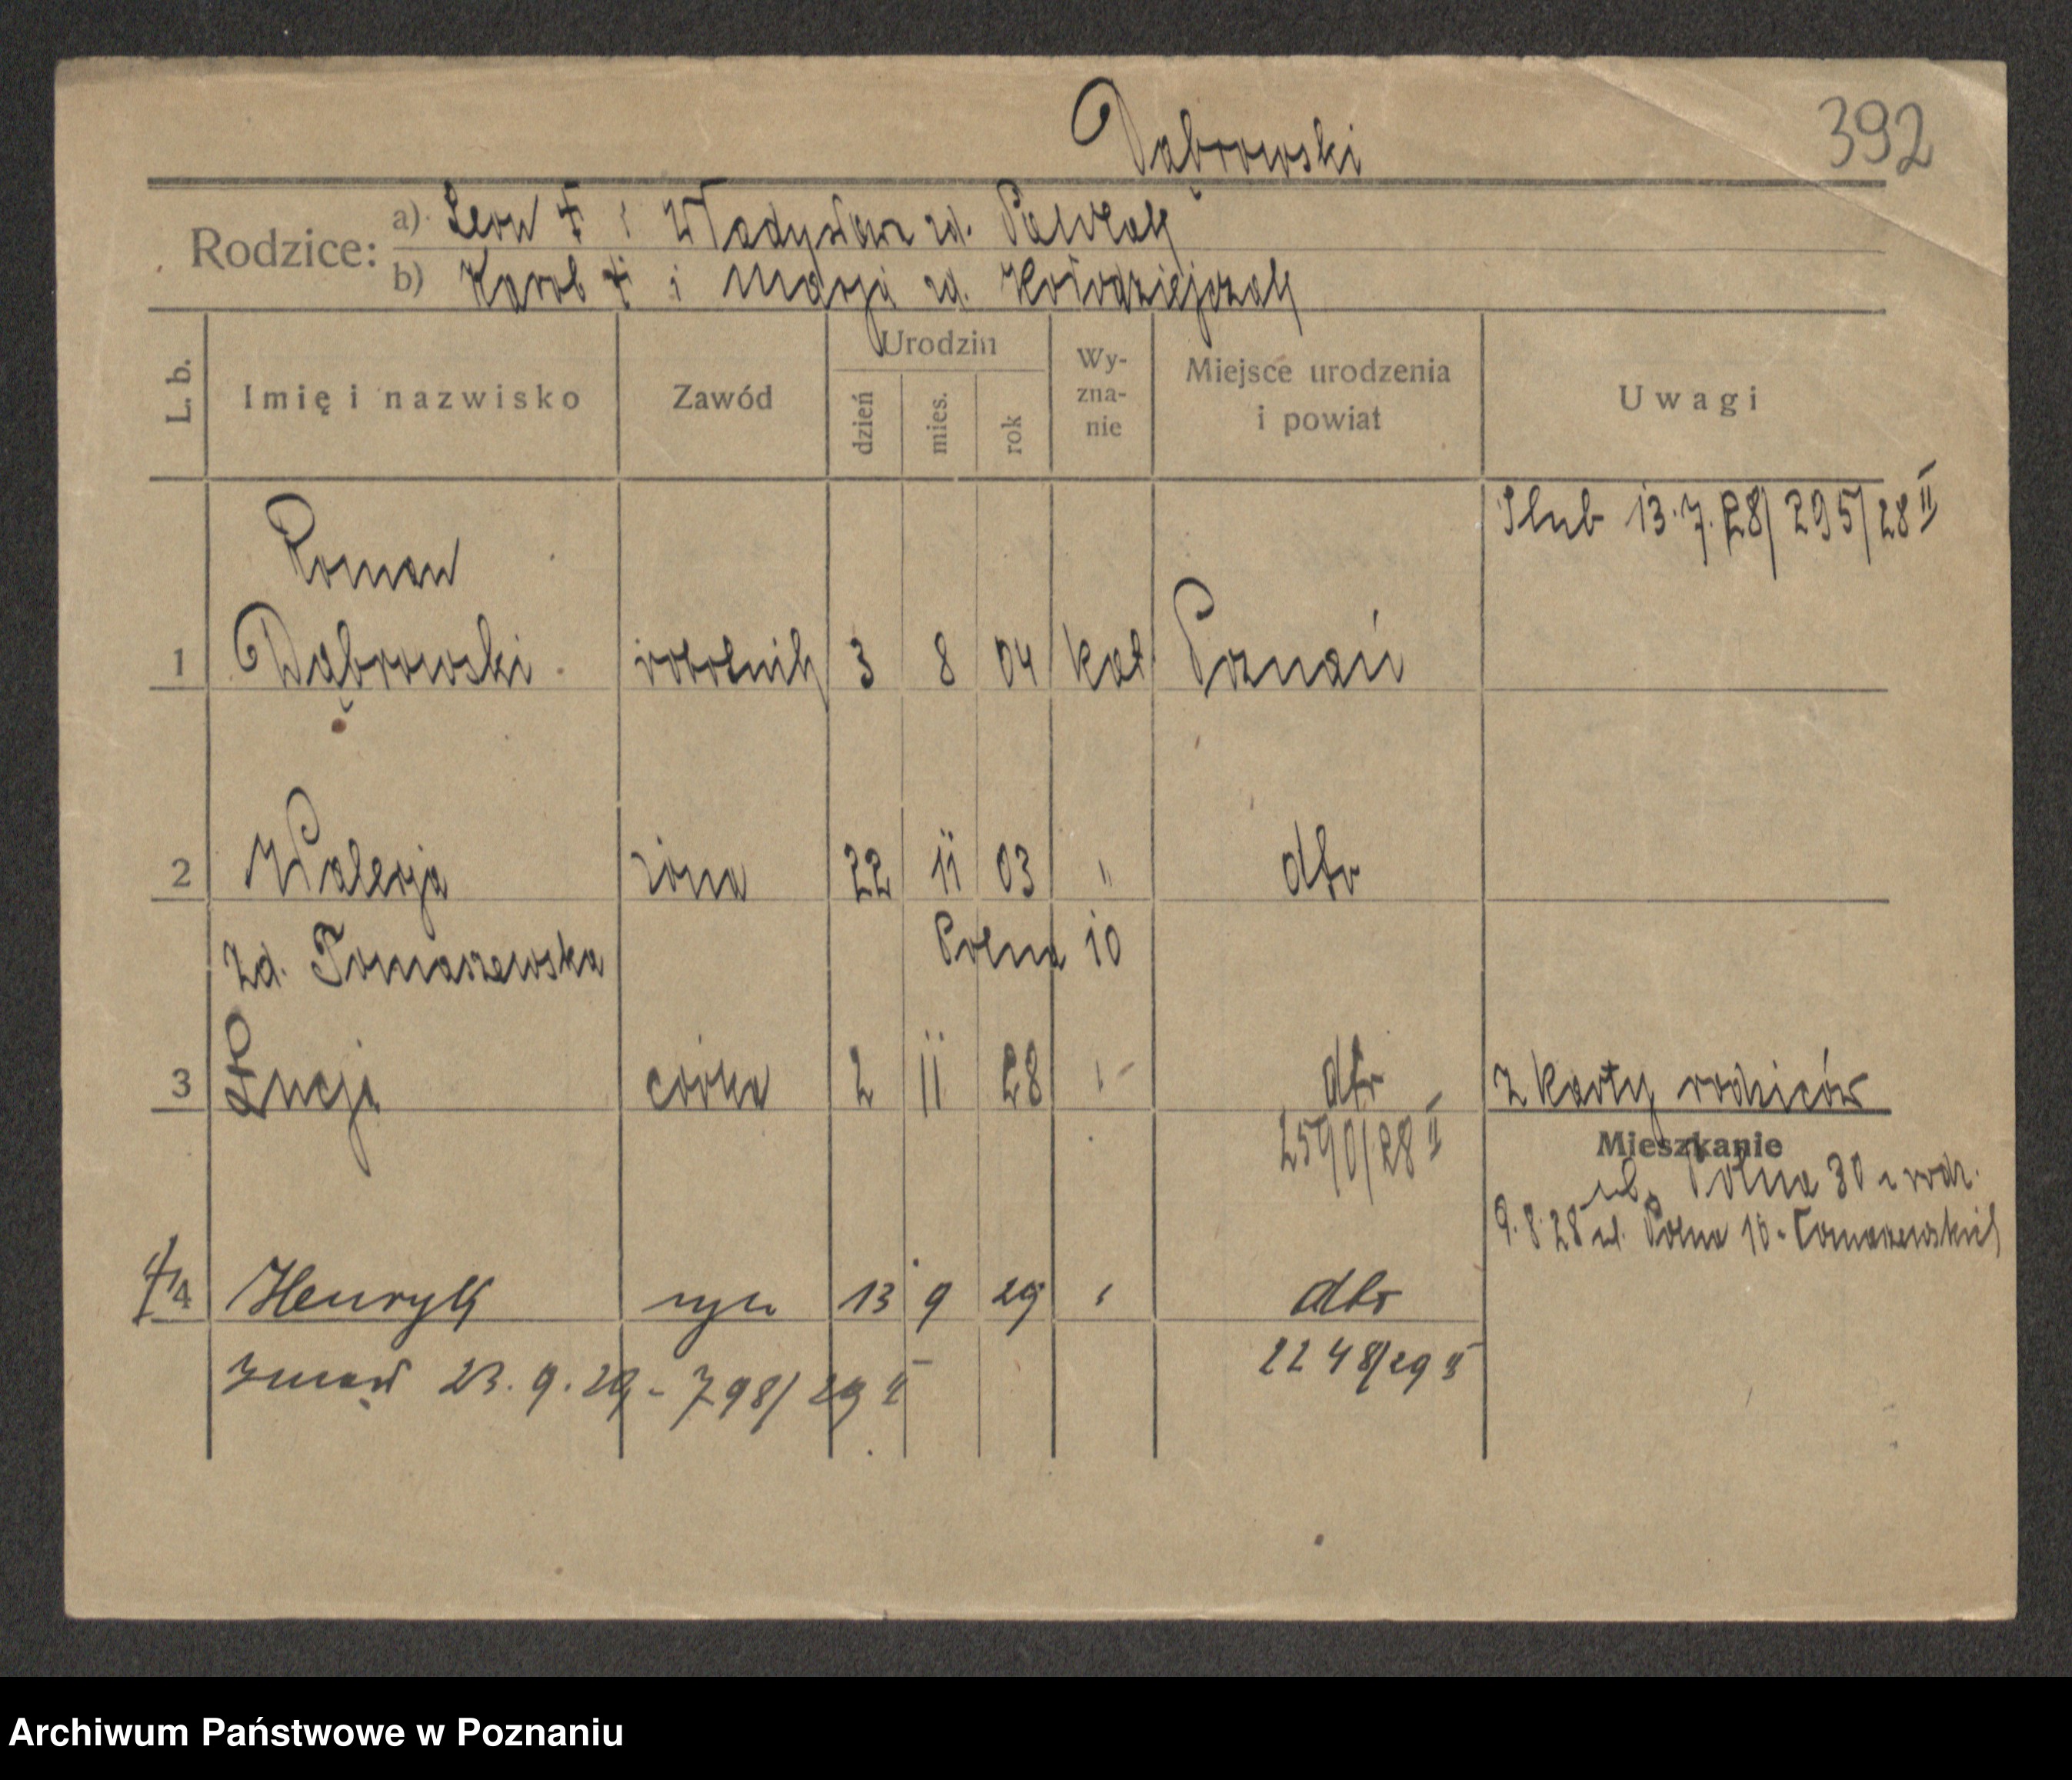 Dąbrowski
392
Rodzice: a) Leon † i Władysława zd. Pawlak
b) Karol † i Marja zd. Kołodziejczak
L. b. Imię i nazwisko Zawód Urodzin dzień mies. rok Wyznanie Miejsce urodzenia i powiat Uwagi
Ślub 13.7.28/295/28 II
Roman
1 Dąbrowski robotnik 3 8 04 kat Poznań
2 Walerja żona 22 11 03 " dto
zd. Tomaszewska Polna 10
3 Łucja córka 2 11 28 " dto z karty rodziców
2590/28 II
Mieszkanie
ul. Polna 30 u rodz.
9.8.28 ul. Polna 10 - Tomaszewskich
† 4 Henryk syn 13 9 29 " dto
2248/29 II
zmarł 23.9.29 - 798/29 II
Archiwum Państwowe w Poznaniu